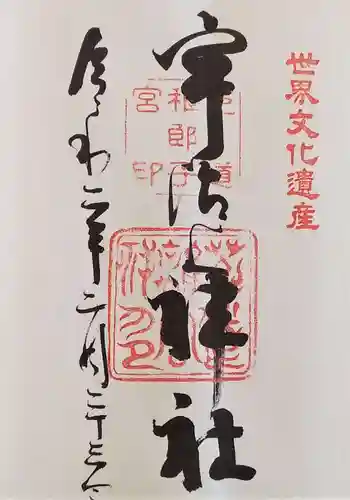 世界文化遺産
宇治上神社
菟道稚郎子宮印
令和二年二月二十三日